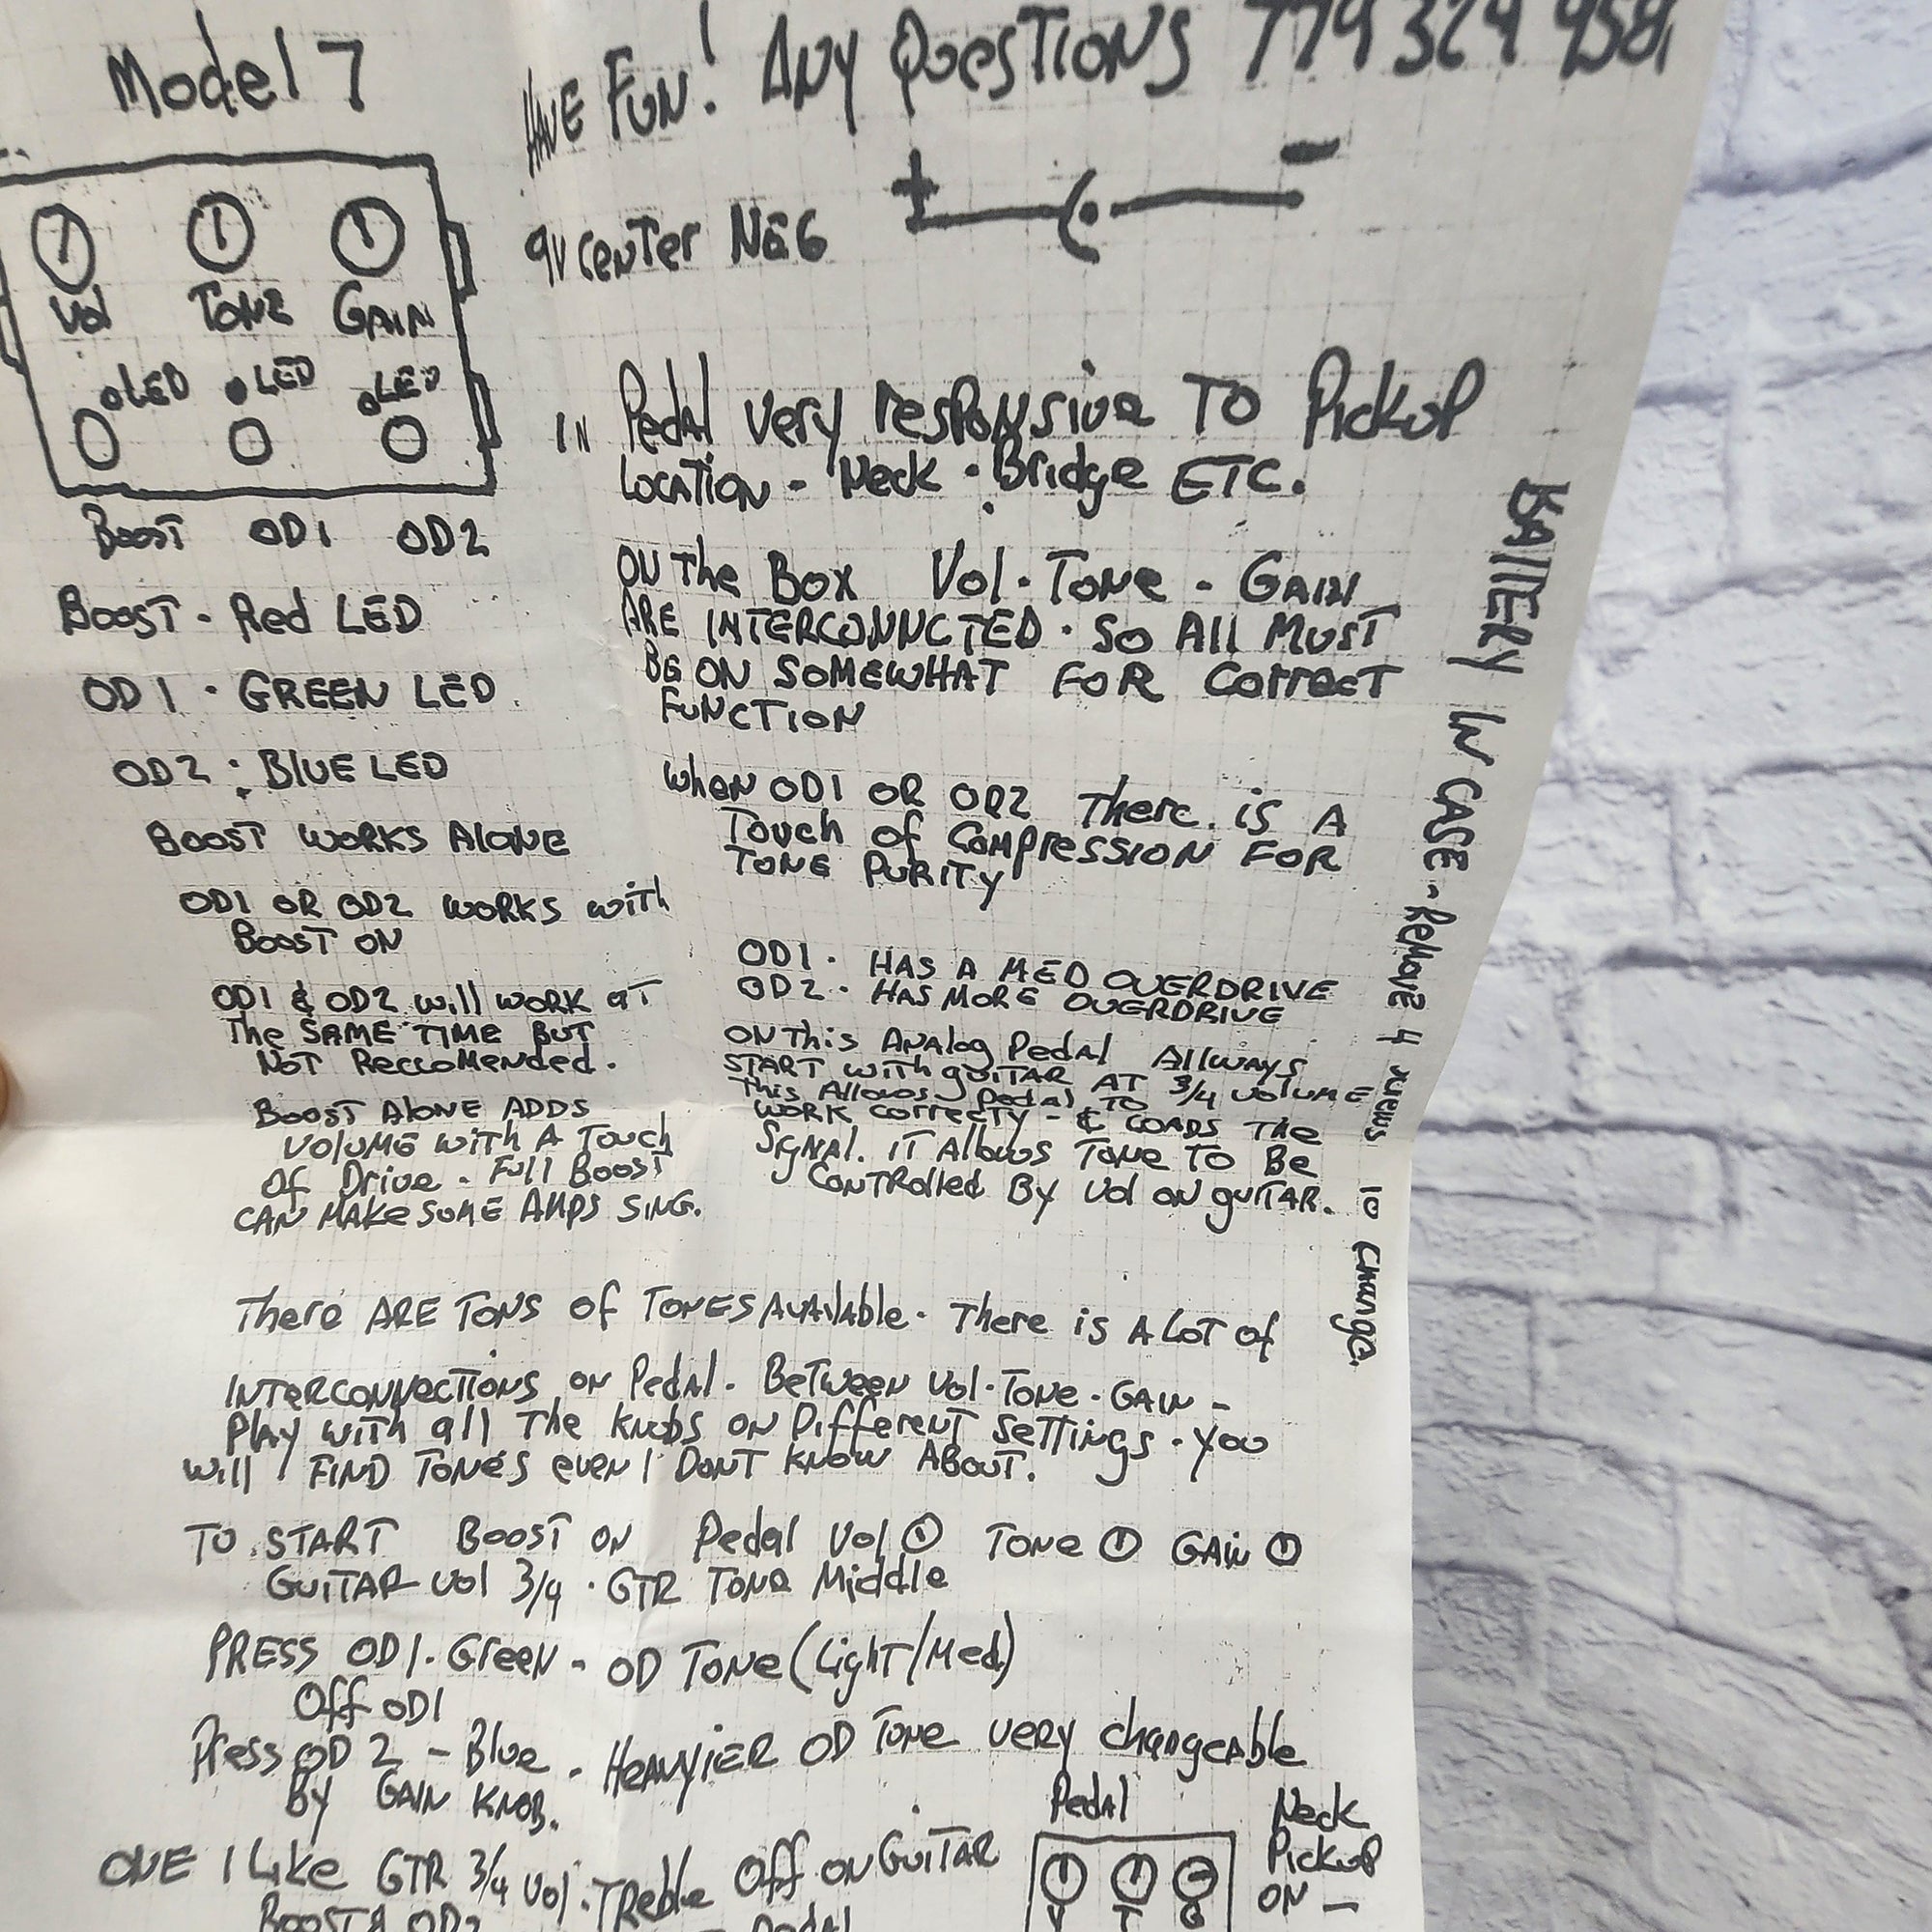 Model 7
HAVE FUN! ANY QUESTIONS 779 324
9V CENTER NEG
+ -
Vol TONE GAIN
LED LED LED
IN
BOOST OD1 OD2
BOOST - Red LED
OD1 - GREEN LED
OD2 : BLUE LED
BOOST WORKS ALONE
OD1 OR OD2 WORKS with
BOOST ON
OD1 & OD2 will WORK AT
The SAME TIME BUT
NOT RECCOMENDED.
BOOST ALONE ADDS
VOLUME WITH A TOUCH
Of Drive - Full BOOST
CAN MAKE SOME AMPS SING.
Pedal very responsive TO Pickup
LOCATION - Neck - Bridge ETC.
ON The Box Vol - Tone - GAIN
ARE INTERCONNCTED - SO All MUST
BE ON SOMEWHAT FOR CORRECT
FUNCTION
When OD1 OR OD2 There is A
Touch of COMPRESSION FOR
TONE PURITY
OD1 - HAS A MED OVERDRIVE
OD2 - HAS MORE OVERDRIVE
ON This Analog Pedal Allways
START with guITAR AT 3/4 VOLUME
This Allows Pedal TO
WORK correcTy - & LOADS The
SIGNAL. IT Allows Tone TO Be
CONTROlled By Vol ON guITAR.
BATTERY IN CASE - Remove 4 screws To Change.
There ARE TONS of TONES AVAIlable - There is A LOT of
INTERCONNECTIONS ON Pedal - Between Vol - Tone - GAIN -
Play with all The KNOBS ON Different Settings - You
will FIND TONES even I DONT KNOW ABOUT.
TO START BOOST ON Pedal Vol Tone GAIN
GUITAR Vol 3/4 - GTR TONE Middle
PRESS OD1 - Green - OD TONE (Light/Med)
Off OD1
Press OD2 - Blue - HEAVYIER OD Tone very changeable
By GAIN KNOB.
ONE I Like GTR 3/4 Vol - TReble Off ON GUITAR
BOOST & OD2 Pedal
Pedal
V T G
Neck
Pickup
ON -